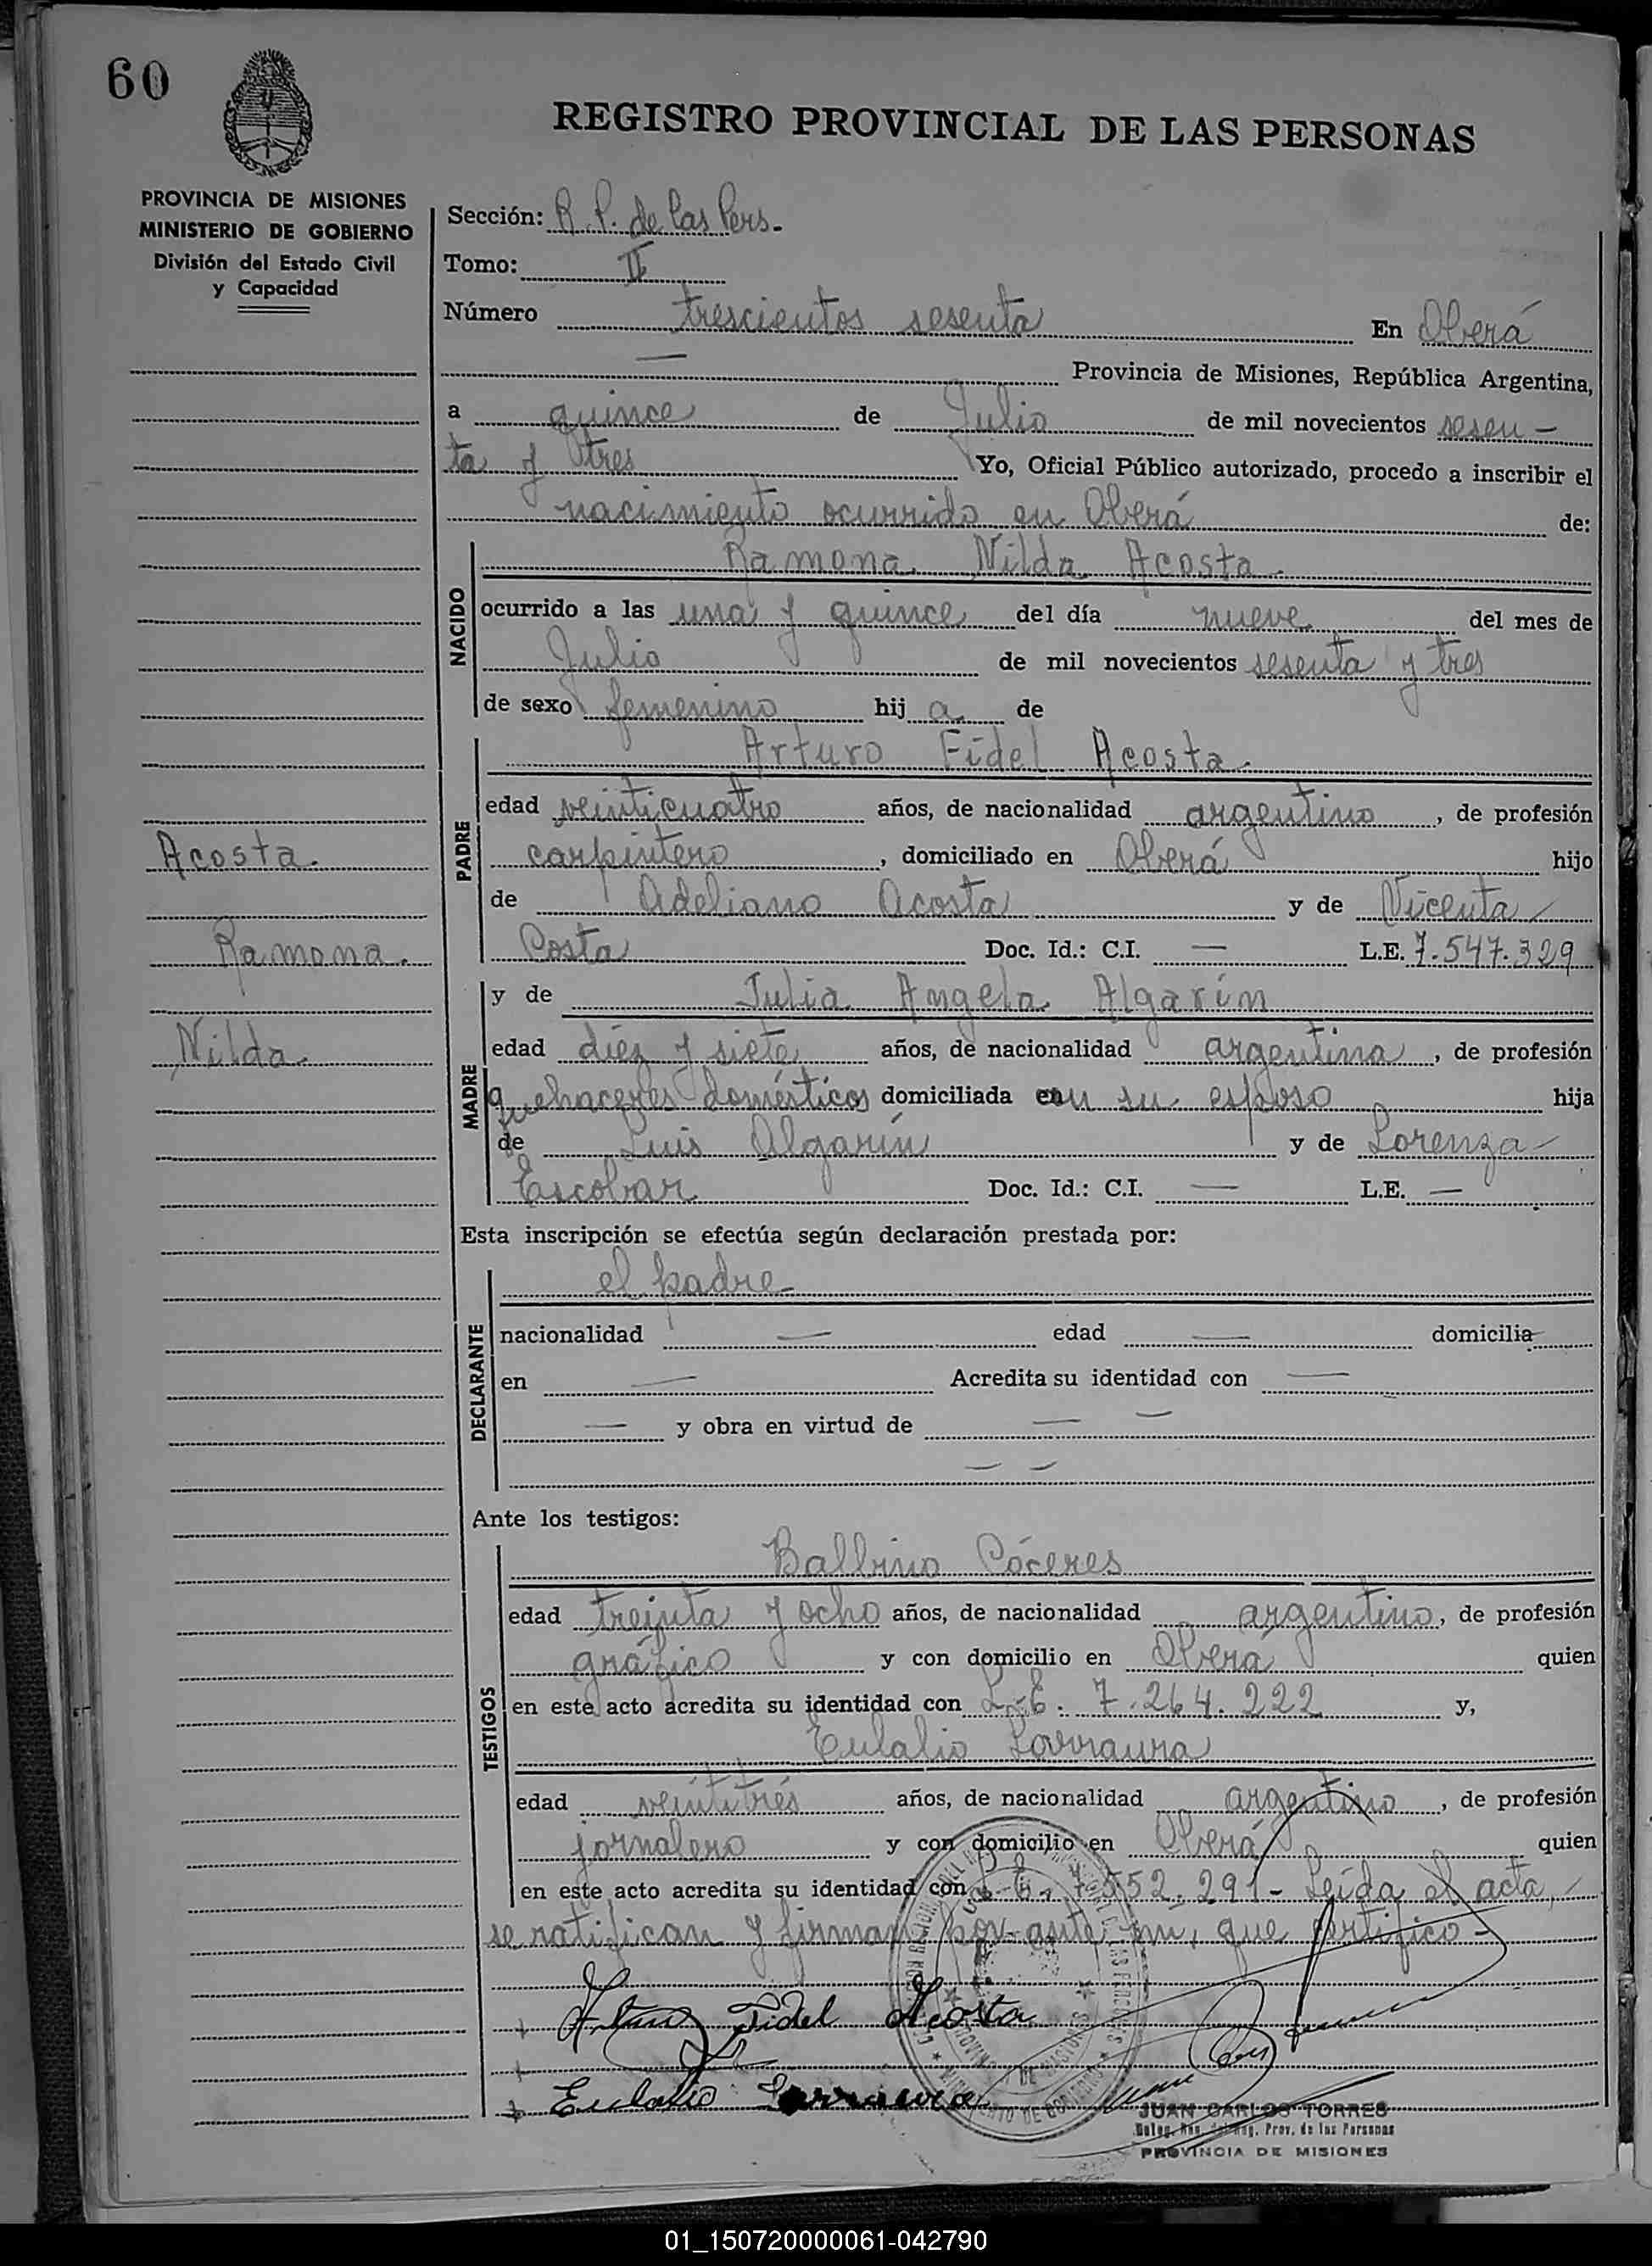 60
REGISTRO PROVINCIAL DE LAS PERSONAS
PROVINCIA DE MISIONES
MINISTERIO DE GOBIERNO
División del Estado Civil
y Capacidad
Sección: R. P. de las Pers.
Tomo: II
Número trescientos sesenta En Oberá
— Provincia de Misiones, República Argentina,
a quince de Julio de mil novecientos sesen-
ta y tres Yo, Oficial Público autorizado, procedo a inscribir el
nacimiento ocurrido en Oberá de:
NACIDO
Ramona Nilda Acosta.
ocurrido a las una y quince del día nueve del mes de
Julio de mil novecientos sesenta y tres
de sexo femenino hij a de
PADRE
Arturo Fidel Acosta.
edad veinticuatro años, de nacionalidad argentino, de profesión
carpintero, domiciliado en Oberá hijo
de Adeliano Acosta y de Vicenta
Costa Doc. Id.: C.I. — L.E. 7.547.329
Acosta.
Ramona.
Nilda.
MADRE
y de Julia Angela Algarín
edad diez y siete años, de nacionalidad argentina, de profesión
quehaceres domésticos domiciliada con su esposo hija
de Luis Algarín y de Lorenza
Escobar Doc. Id.: C.I. — L.E. —
Esta inscripción se efectúa según declaración prestada por:
DECLARANTE
el padre
nacionalidad — edad — domicilia
en — Acredita su identidad con —
— y obra en virtud de — —
— —
Ante los testigos:
TESTIGOS
Balbino Cáceres
edad treinta y ocho años, de nacionalidad argentino, de profesión
gráfico y con domicilio en Oberá quien
en este acto acredita su identidad con L.E. 7.264.222 y,
Eulalio Larraura
edad veintitrés años, de nacionalidad argentino, de profesión
jornalero y con domicilio en Oberá quien
en este acto acredita su identidad con L.E. 7.552.291- Leída el acta,
se ratifican y firman por ante mi, que certifico-
Arturo Fidel Acosta
Eulalio Larraura
JUAN CARLOS TORRES
Prov. de las Personas
PROVINCIA DE MISIONES
01_150720000061-042790